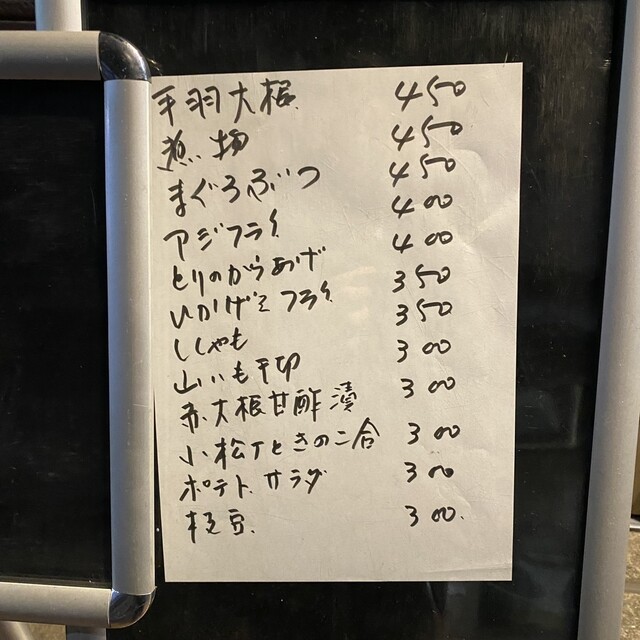 手羽大根 450
煮物 450
まぐろぶつ 450
アジフライ 400
とりのからあげ 400
いかげそフライ 350
ししゃも 350
山いも千切 300
赤大根甘酢漬 300
小松了ときのこ合 300
ポテトサラダ 300
枝豆 300